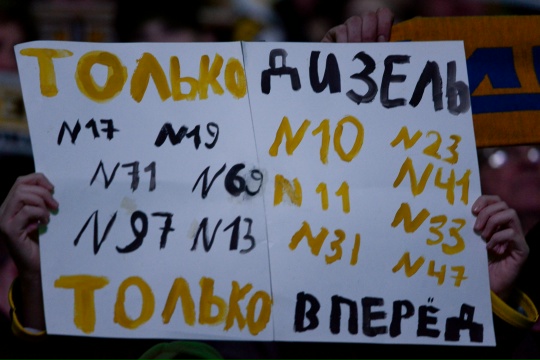 ТОЛЬКО ДИЗЕЛЬ
N17 N19 N10 N23
N71 N69 N11 N41
N97 N13 N31 N33
N47
ТОЛЬКО ВПЕРЁД